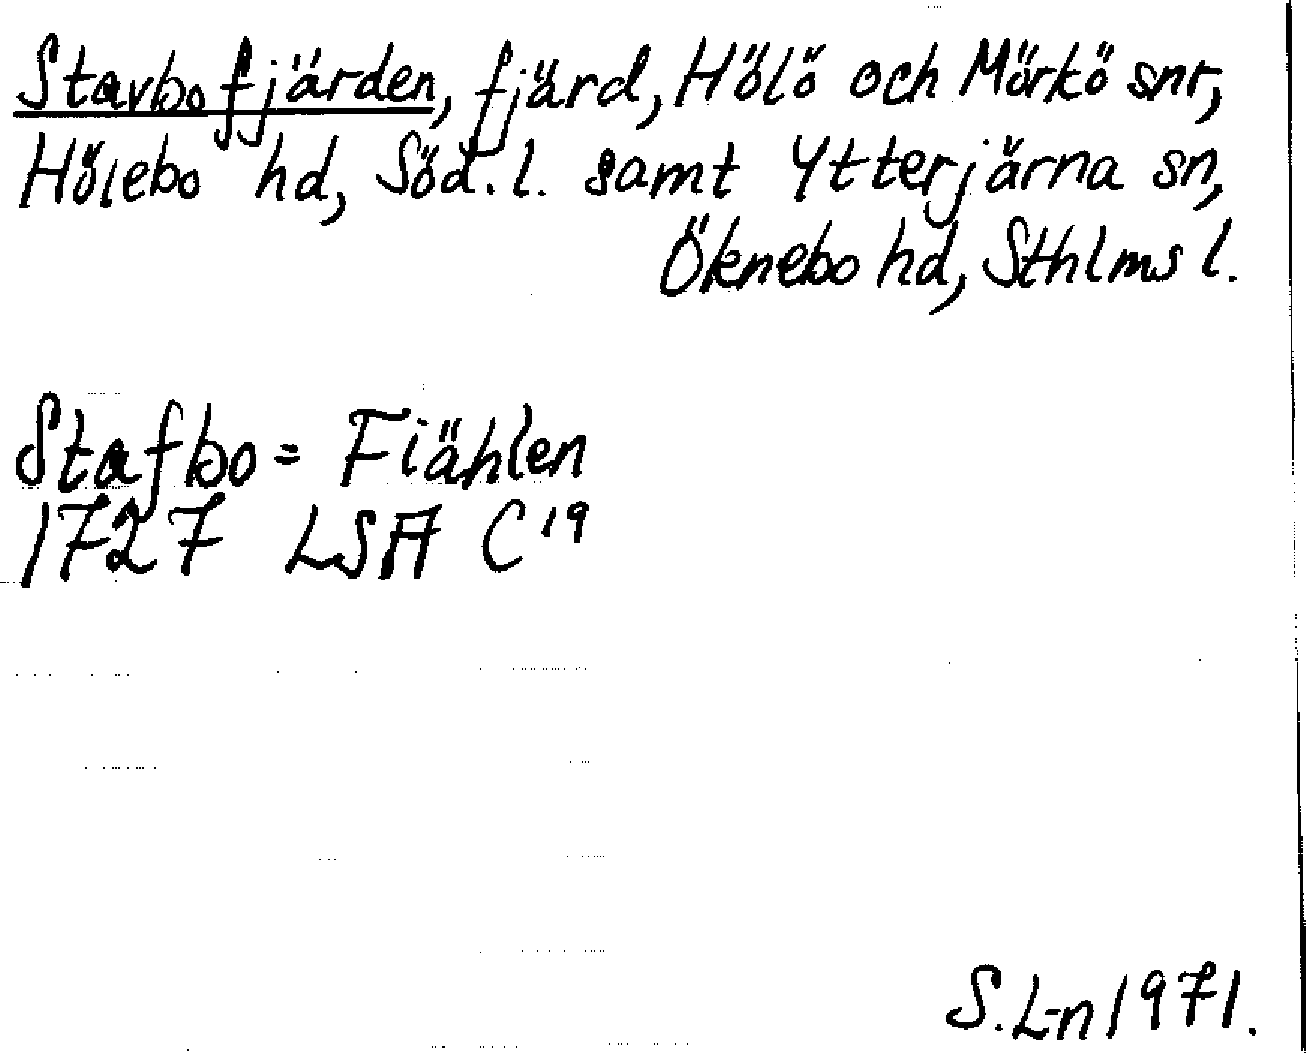 Stavbofjärden, fjärd, Hölö och Mörkö snr,
Hölebo hd, Söd. l. samt Ytterjärna sn,
Öknebo hd, Sthlms l.
Stafbo = Fiählen
1727 LSA C19
S. L-n 1971.